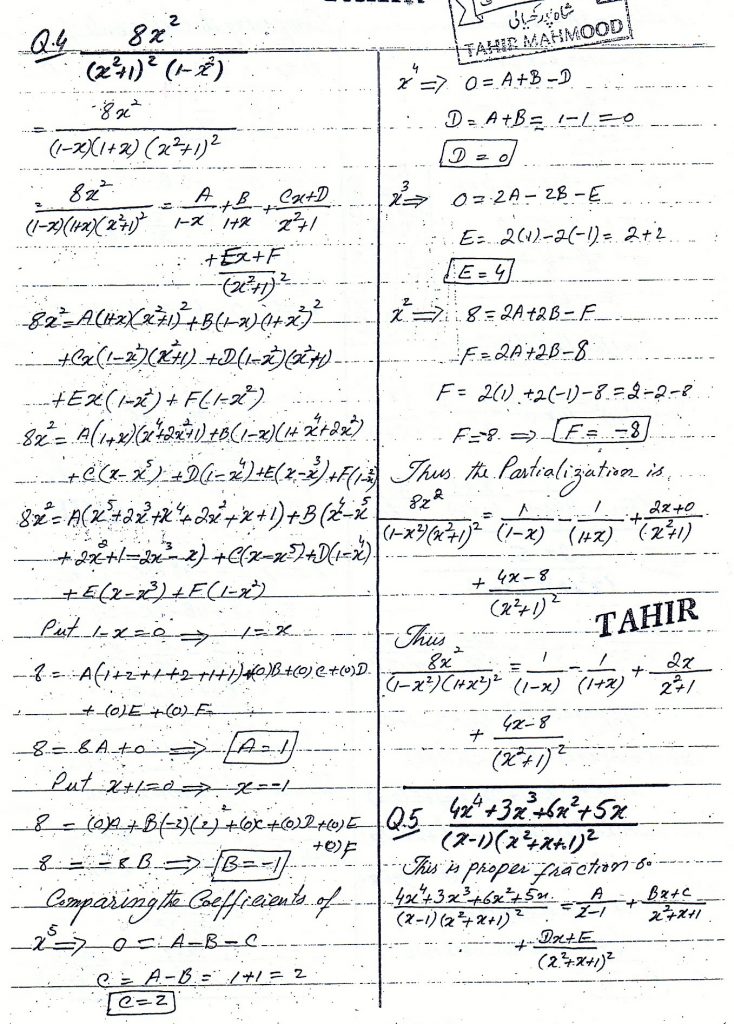 شاه پور کہالی
TAHIR MAHMOOD
Q.4 8x² / (x²+1)² (1-x²)
= 8x² / (1-x)(1+x) (x²+1)²
= 8x² / (1-x)(1+x)(x²+1)² = A / 1-x + B / 1+x + Cx+D / x²+1
+ Ex+F / (x²+1)²
8x² = A(1+x)(x²+1)² + B(1-x)(1+x²)²
+ Cx(1-x²)(x²+1) + D(1-x²)(x²+1)
+ Ex(1-x²) + F(1-x²)
8x² = A(1+x)(x⁴+2x²+1) + B(1-x)(1+x⁴+2x²)
+ C(x-x⁵) + D(1-x⁴) + E(x-x³) + F(1-x²)
8x² = A(x⁵+2x³+x⁴+2x²+x+1) + B(x⁴-x⁵
+ 2x²+1-2x³-x) + C(x-x⁵) + D(1-x⁴)
+ E(x-x³) + F(1-x²)
Put 1-x=0 ⟹ 1=x
8 = A(1+2+1+2+1+1)+(0)B+(0)C+(0)D
+ (0)E + (0)F
8 = 8A+0 ⟹ A=1
Put x+1=0 ⟹ x=-1
8 = (0)A + B(-2)(2)² + (0)C + (0)D + (0)E
+(0)F
8 = -8B ⟹ B=-1
Comparing the Coefficients of
x⁵ ⟹ 0 = A-B-C
C = A-B = 1+1 = 2
C=2
x⁴ ⟹ 0 = A+B-D
D = A+B = 1-1 = 0
D = 0
x³ ⟹ 0 = 2A-2B-E
E = 2(1)-2(-1) = 2+2
E=4
x² ⟹ 8 = 2A+2B-F
F = 2A+2B-8
F = 2(1)+2(-1)-8 = 2-2-8
F=-8 ⟹ F = -8
Thus the Partialization is
8x² / (1-x²)(x²+1)² = 1 / (1-x) - 1 / (1+x) + 2x+0 / (x²+1)
+ 4x-8 / (x²+1)²
TAHIR
Thus
8x² / (1-x²)(1+x²)² = 1 / (1-x) - 1 / (1+x) + 2x / x²+1
+ 4x-8 / (x²+1)²
Q.5 4x⁴+3x³+6x²+5x / (x-1)(x²+x+1)²
This is proper fraction so
4x⁴+3x³+6x²+5x / (x-1)(x²+x+1)² = A / x-1 + Bx+C / x²+x+1
+ Dx+E / (x²+x+1)²